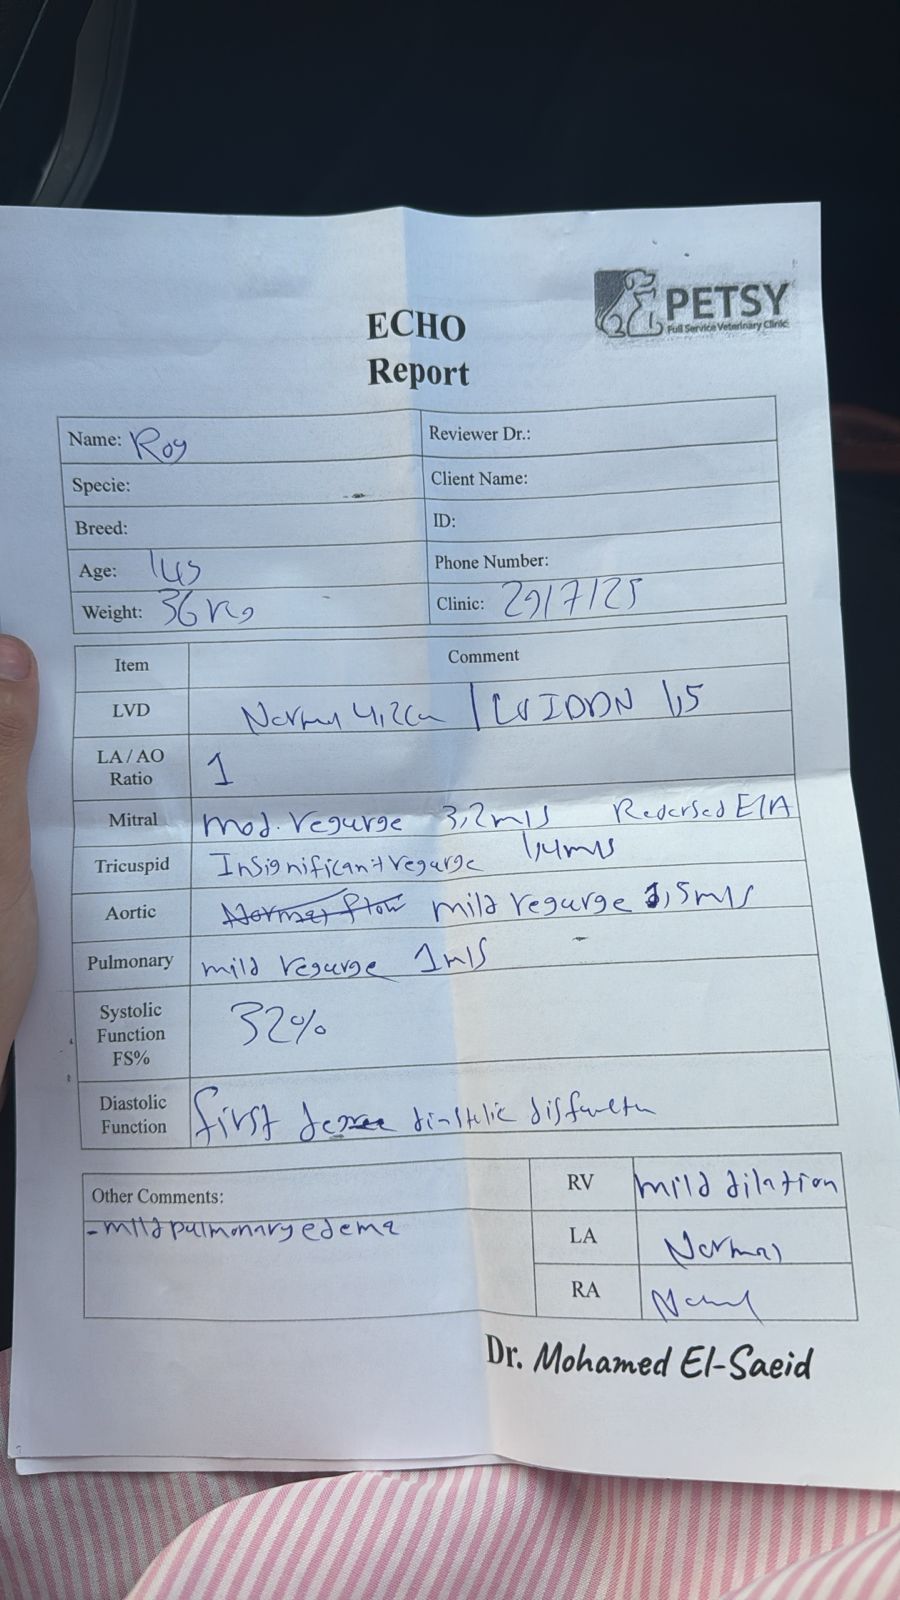 PETSY
Full Service Veterinary Clinic
ECHO
Report
Name: Roy
Reviewer Dr.:
Specie:
Client Name:
Breed:
ID:
Age: 14y
Phone Number:
Weight: 36 Kg
Clinic: 29/7/25
Item
Comment
LVD
Normal 4,2cm / LVIDDN 1,5
LA / AO
Ratio
1
Mitral
mod. regurge 3,2m/s Reversed E/A
Tricuspid
Insignificant regurge 1,4m/s
Aortic
Normal flow mild regurge 1,5m/s
Pulmonary
mild regurge 1m/s
Systolic
Function
FS%
32%
Diastolic
Function
first degree diastolic disfunctn
Other Comments:
- mild pulmonary edema
RV
mild dilation
LA
Normal
RA
Normal
Dr. Mohamed El-Saeid